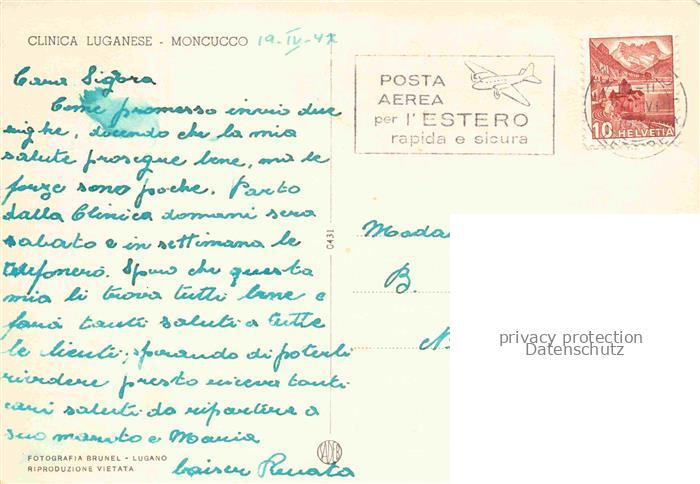 CLINICA LUGANESE - MONCUCCO 19-IV-47
Cara Sigora
Come promesso invio due
righe, dicendo che la mia
salute prosegue bene, ma le
forze sono poche. Parto
dalla Clinica domani sera
sabato e in settimana le
telefonerò. Spero che questa
mia li trova tutti bene e
farà tanti saluti a tutte
le clienti, sperando di poterli
rivedere presto riceva tanti
cari saluti da ripartire a
suo marito e Maria
baiser Renata
FOTOGRAFIA BRUNEL - LUGANO
RIPRODUZIONE VIETATA
0431
POSTA
AEREA
per l'ESTERO
rapida e sicura
10 HELVETIA
Mada
B.
N
privacy protection
Datenschutz